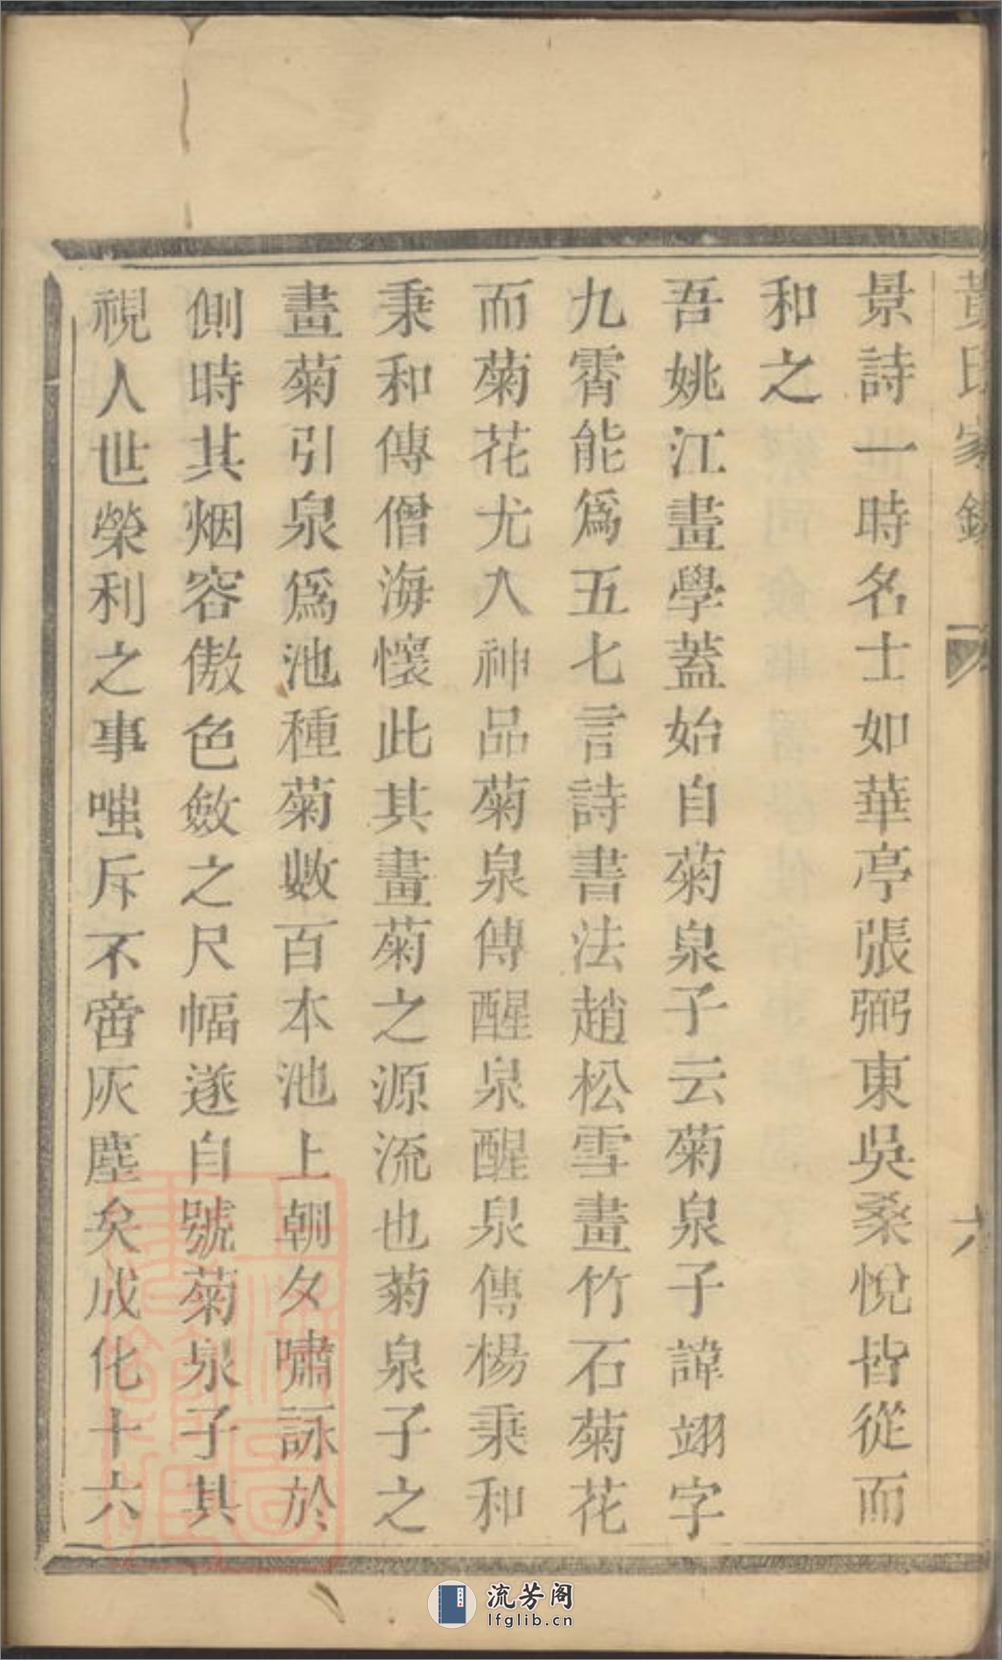 黃氏家錄
六
景詩一時名士如華亭張弼東吳桑悅皆從而
和之
吾姚江畫學蓋始自菊泉子云菊泉子諱翊字
九霄能爲五七言詩書法趙松雪畫竹石菊花
而菊花尤入神品菊泉傳醒泉醒泉傳楊秉和
秉和傳僧海懷此其畫菊之源流也菊泉子之
畫菊引泉爲池種菊數百本池上朝夕嘯詠於
側時其烟容傲色斂之尺幅遂自號菊泉子其
視人世榮利之事嗤斥不啻灰塵矣成化十六
流芳阁
lfglib.cn